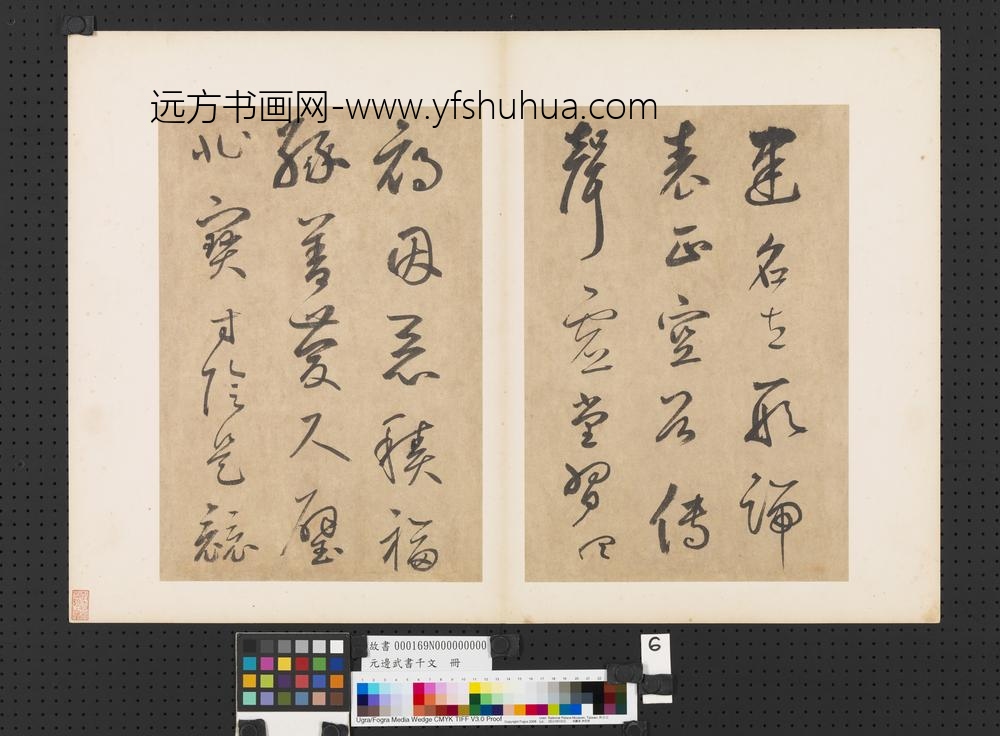 远方书画网-www.yfshuhua.com
建名立形端
表正空谷傳
聲虛堂習聽
禍因惡積福
緣善慶尺璧
非寶寸陰是競
故書 000169N000000000
元邊武書千文 冊
6
Ugra/Fogra Media Wedge CMYK TIFF V3.0 Proof